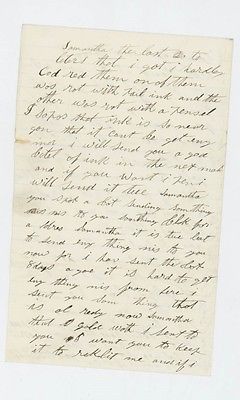 Samantha the last to
tirs that i got i hardly
Cod red them on of them
was rot with Pail ink and the
other was rot with a pensel
I Sopos that ink is so near
you that it cant be got eny
mor i will send you a god
botel of ink in the nex
and if you want i
will Send it tell Samantha
you Spok a bot Sending Somthing
nis to you Somthing
a dres Samantha it is tru
to Send eny thing nis to you
now for i hav Sent the
8 days agoe it is hard to get
eny thing nis from here i
Sent you Som thing that
is al redy now Samantha
that gold i Sent to
you i want you to keep
it to me and if i